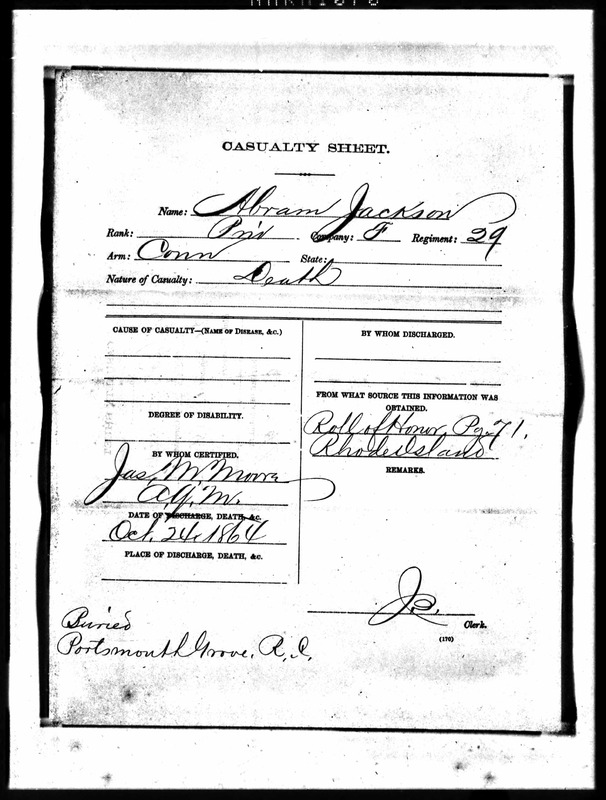 CASUALTY SHEET.
Name: Abram Jackson
Rank: Priv Company: F Regiment: 29
Arm: Conn State:
Nature of Casualty: Death
CAUSE OF CASUALTY—(NAME OF DISEASE, &c.)
DEGREE OF DISABILITY.
BY WHOM CERTIFIED.
Jas. M. Moore
A.Q.M.
DATE OF DISCHARGE, DEATH, &c.
Oct. 24, 1864
PLACE OF DISCHARGE, DEATH, &c.
BY WHOM DISCHARGED.
FROM WHAT SOURCE THIS INFORMATION WAS
OBTAINED.
Roll of Honor, Pg. 71.
Rhode Island
REMARKS.
Clerk.
(170)
Buried
Portsmouth Grove, R.I.